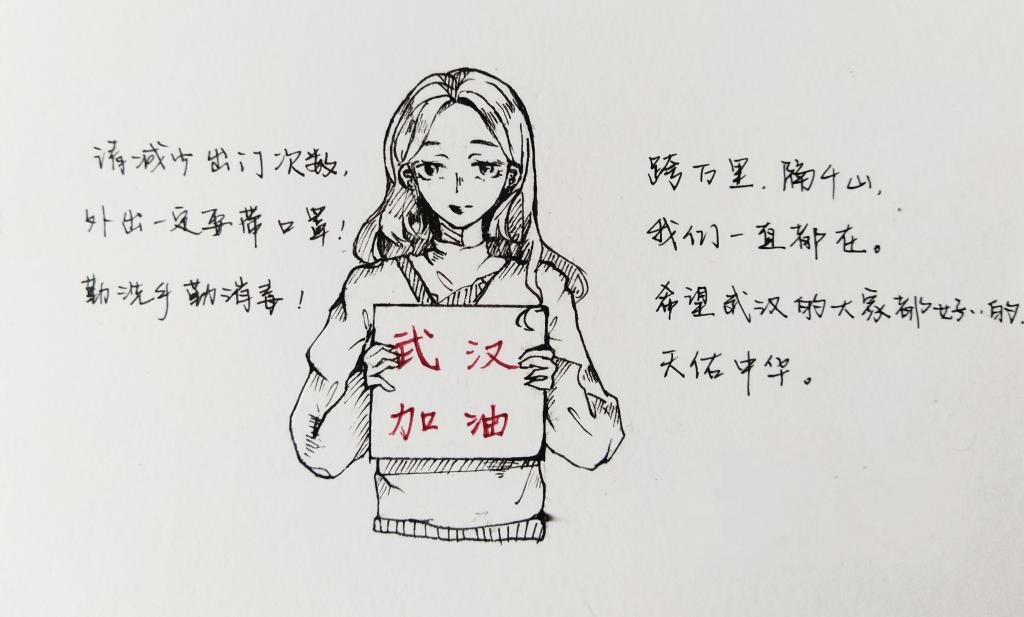 请减少出门次数,
外出一定要带口罩!
勤洗手勤消毒!
武汉
加油
跨万里.隔千山,
我们一直都在。
希望武汉的大家都好好的.
天佑中华。